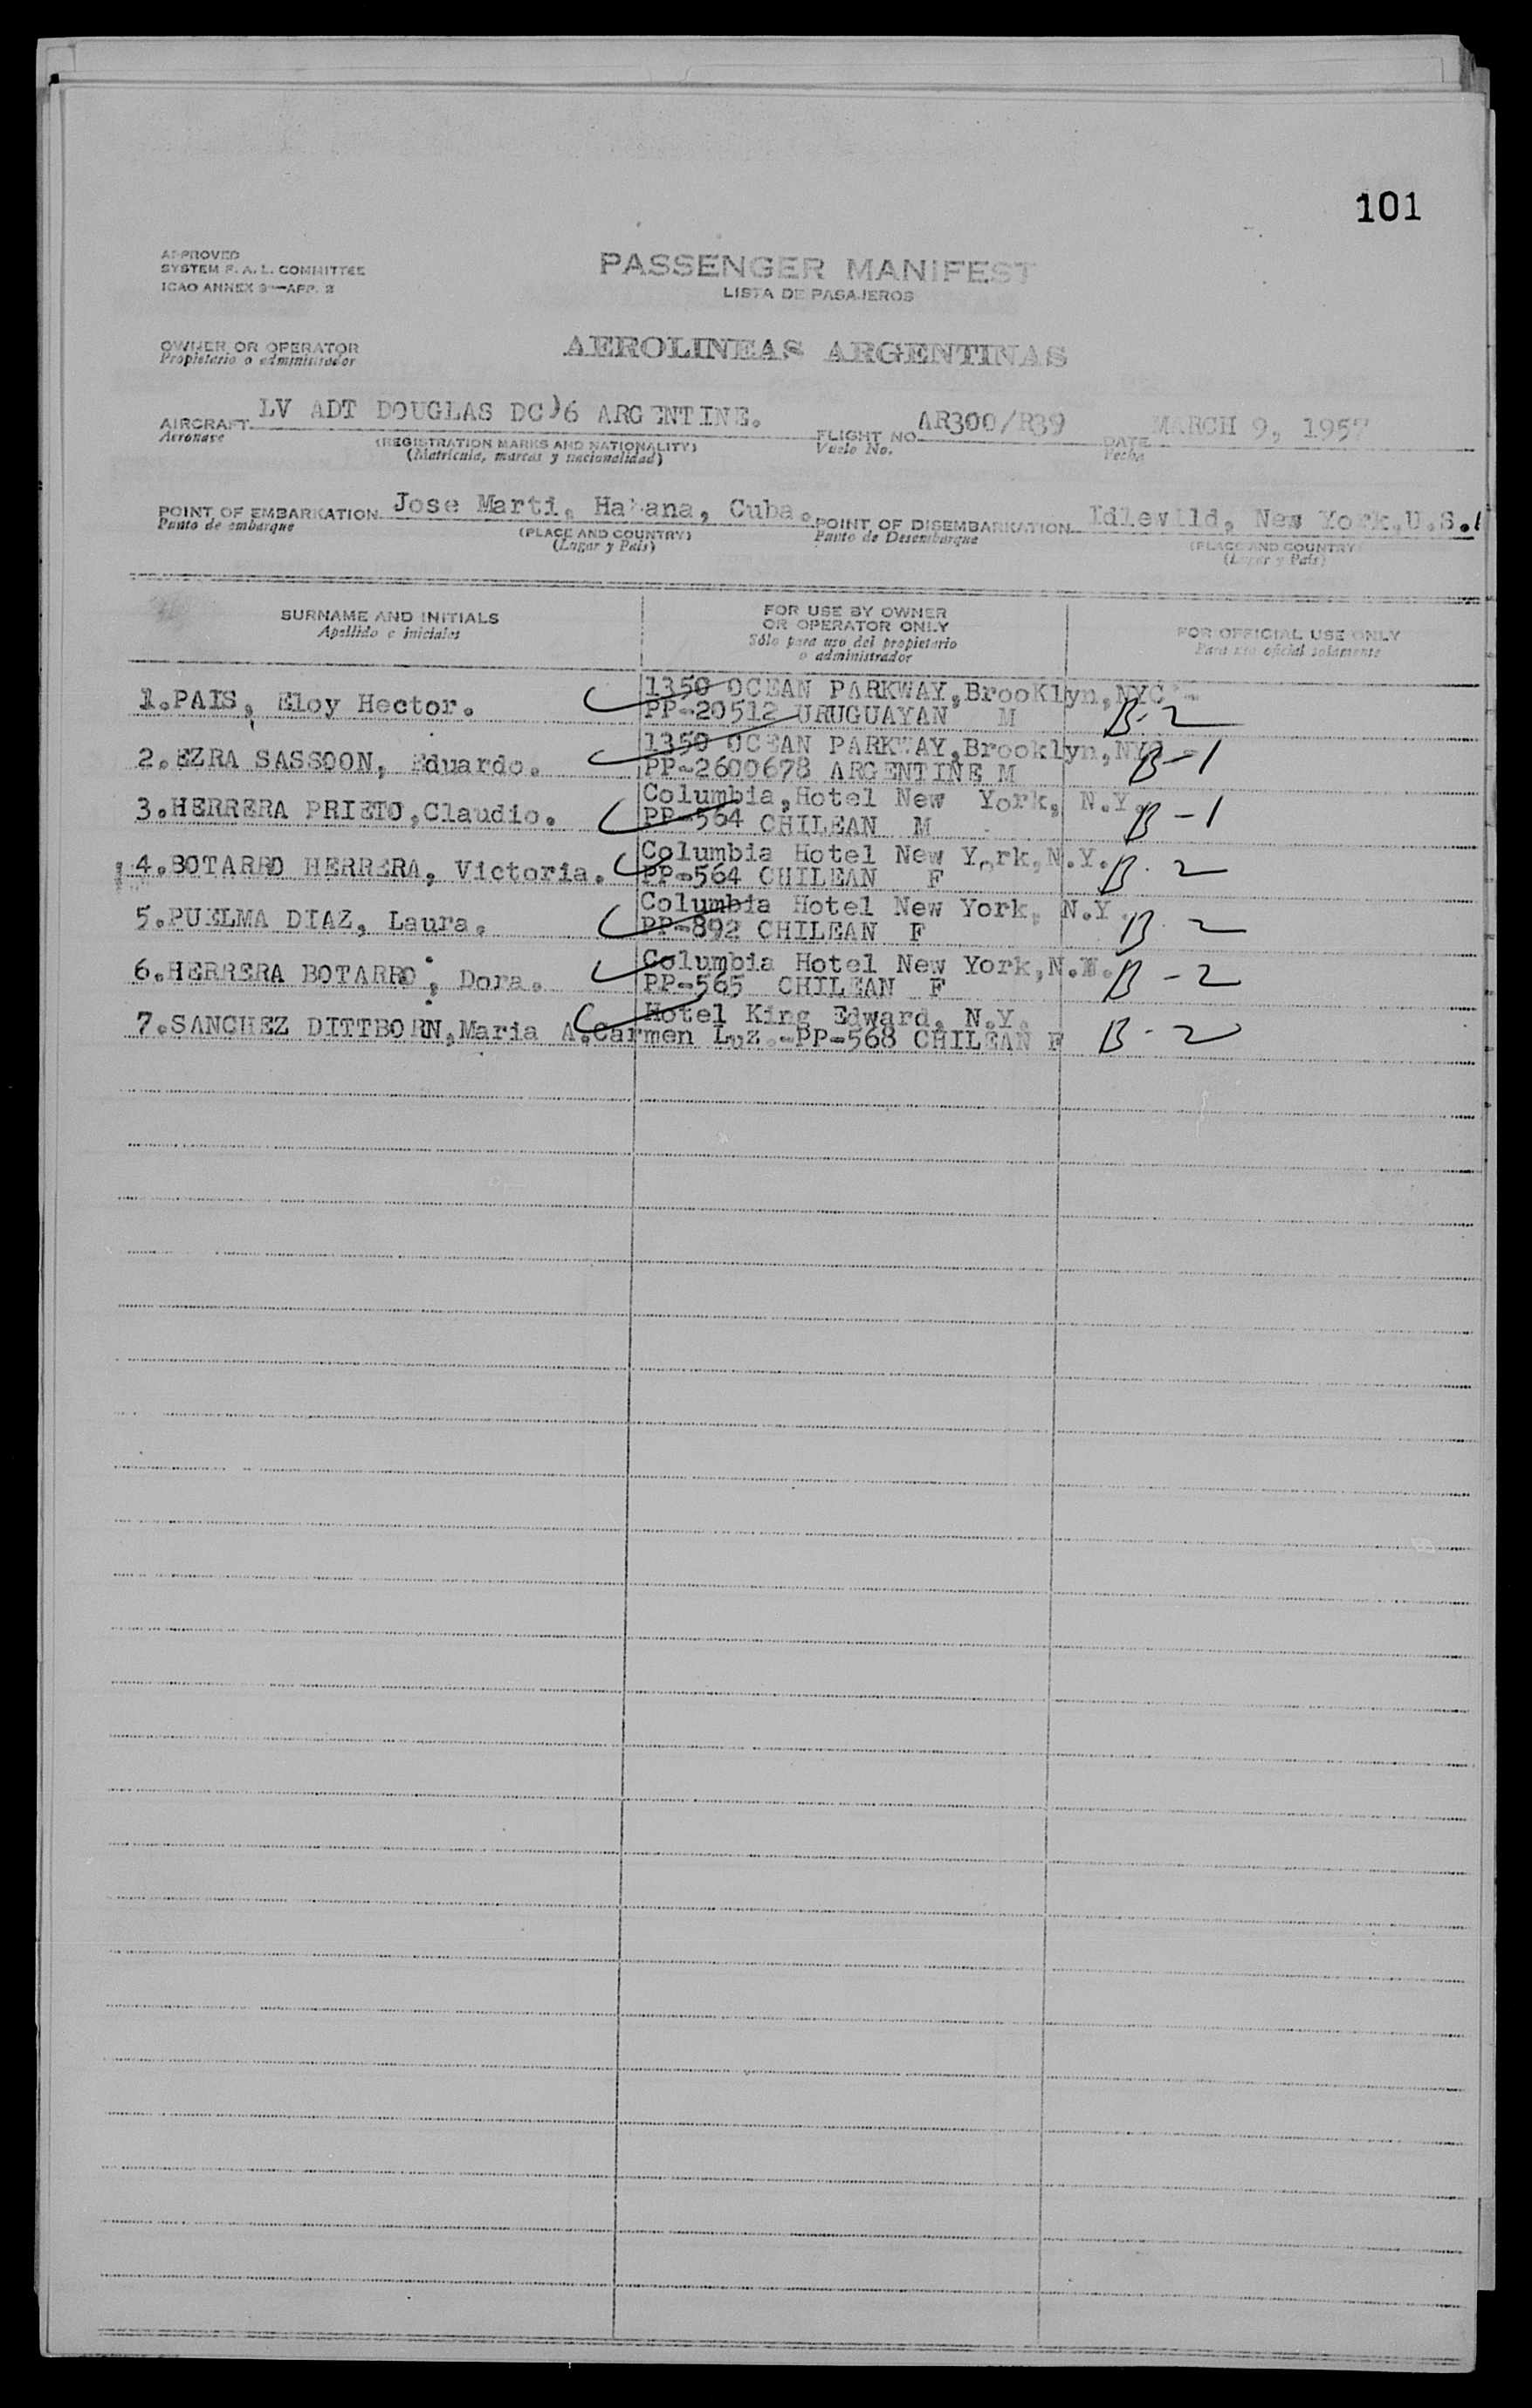 101
APPROVED
SYSTEM F. A. L. COMMITTEE
ICAO ANNEX 9—APP. 2
PASSENGER MANIFEST
LISTA DE PASAJEROS
OWNER OR OPERATOR
Propietario o administrador
AEROLINEAS ARGENTINAS
AIRCRAFT LV ADT DOUGLAS DC)6 ARGENTINE. FLIGHT NO. AR300/R39 DATE MARCH 9, 1957
Aeronave (REGISTRATION MARKS AND NATIONALITY) Vuelo No. Fecha
(Matrícula, marcas y nacionalidad)
POINT OF EMBARKATION Jose Marti, Habana, Cuba. POINT OF DISEMBARKATION Idlewild, New York,U.S.
Punto de embarque (PLACE AND COUNTRY) Punto de Desembarque (PLACE AND COUNTRY)
(Lugar y País) (Lugar y País)
SURNAME AND INITIALS
Apellido e iniciales
FOR USE BY OWNER
OR OPERATOR ONLY
Sólo para uso del propietario
o administrador
FOR OFFICIAL USE ONLY
Para uso oficial solamente
1350 OCEAN PARKWAY,BrooKlyn,NYC-
1.PAIS, Eloy Hector. PP-20512 URUGUAYAN M B-2
1350 OCEAN PARKWAY,Brooklyn,NYC
2.EZRA SASSOON, Eduardo. PP-2600678 ARGENTINE M B-1
Columbia,Hotel New York, N.Y.
3.HERRERA PRIETO,Claudio. PP-564 CHILEAN M B-1
Columbia Hotel New York,N.Y.
4.BOTARRO HERRERA, Victoria. PP-564 CHILEAN F B-2
Columbia Hotel New York, N.Y.
5.PUELMA DIAZ, Laura. PP-892 CHILEAN F B-2
Columbia Hotel New York,N.Y.
6.HERRERA BOTARRO, Dora. PP-565 CHILEAN F B-2
Hotel King Edward, N.Y.
7.SANCHEZ DITTBORN,Maria A.Carmen Luz.-PP-568 CHILEAN F B-2